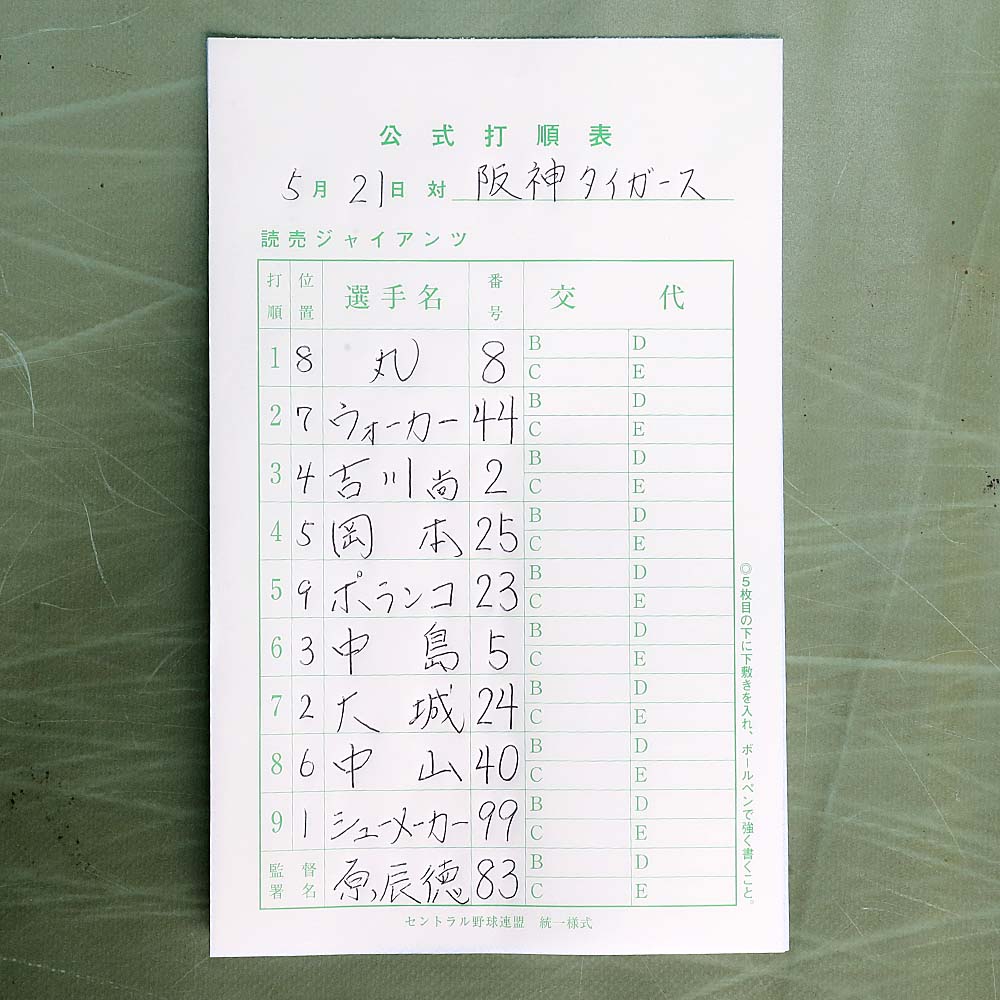 公式打順表
5月21日 対 阪神タイガース
読売ジャイアンツ
打順 位置 選手名 番号 交代
1 8 丸 8 B D
C E
2 7 ウォーカー 44 B D
C E
3 4 吉川尚 2 B D
C E
4 5 岡本 25 B D
C E
5 9 ポランコ 23 B D
C E
6 3 中島 5 B D
C E
7 2 大城 24 B D
C E
8 6 中山 40 B D
C E
9 1 シューメーカー 99 B D
C E
監督署名 原辰徳 83 B D
C E
セントラル野球連盟 統一様式
◎5枚目の下に下敷きを入れ、ボールペンで強く書くこと。